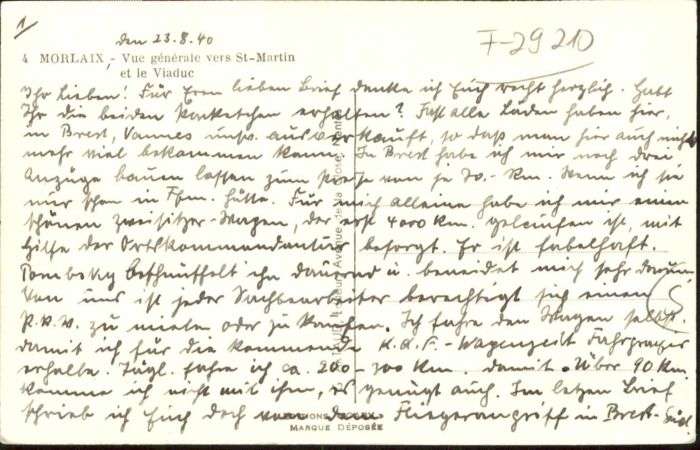 1
den 23.8.40
F-29210
4 MORLAIX, - Vue générale vers St-Martin
et le Viaduc
Ihr Lieben! Für Eren lieben Brief danke ich Euch recht herzlich. Habt
Ihr die beiden Paketchen erhalten? Fast alle Läden haben hier,
in Brest, Vannes usw. ausverkauft, so daß man hier auch nicht
mehr viel bekommen kann. In Brest habe ich mir noch drei
Anzüge bauen lassen zum Preise von je 50.- Rm. Wenn ich sie
nur schon in Hütte. Für mich alleine habe ich mir einen
schönen zweisitzer-Wagen, der erst 4000 Km. gelaufen ist, mit
Hilfe der Ortskommandantur besorgt. Er ist fabelhaft.
ihn dauernd u. beneidet mich sehr darum
Von uns ist jeder Sachbearbeiter berechtigt sich einen
P.K.W. zu mieten oder zu kaufen. Ich fahre den Wagen selbst
damit ich für die kommende K.d.F.-Wagenzeit Fahrpraxis
erhalte. Tägl. fahre ich ca. 200-300 Km. damit. Über 90 Km
komme ich nicht mit ihm, es genügt auch. Im letzen Brief
schrieb ich Euch doch Fliegerangriff in Brest-Süd.
MARQUE DÉPOSÉE